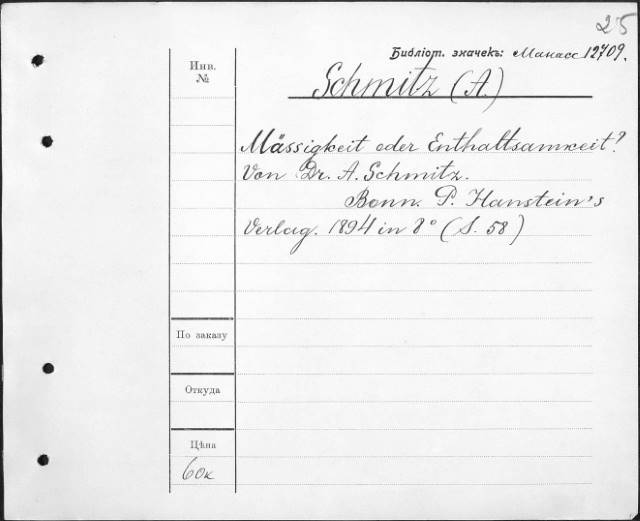 25
Библіот. значекъ: Манасс 12709.
Инв.
№
Schmitz (A.)
Mässigkeit oder Enthaltsamkeit?
Von Dr. A. Schmitz.
Bonn. P. Hanstein's
Verlag. 1894 in 8° (S. 58)
По заказу
Откуда
Цѣна
60к